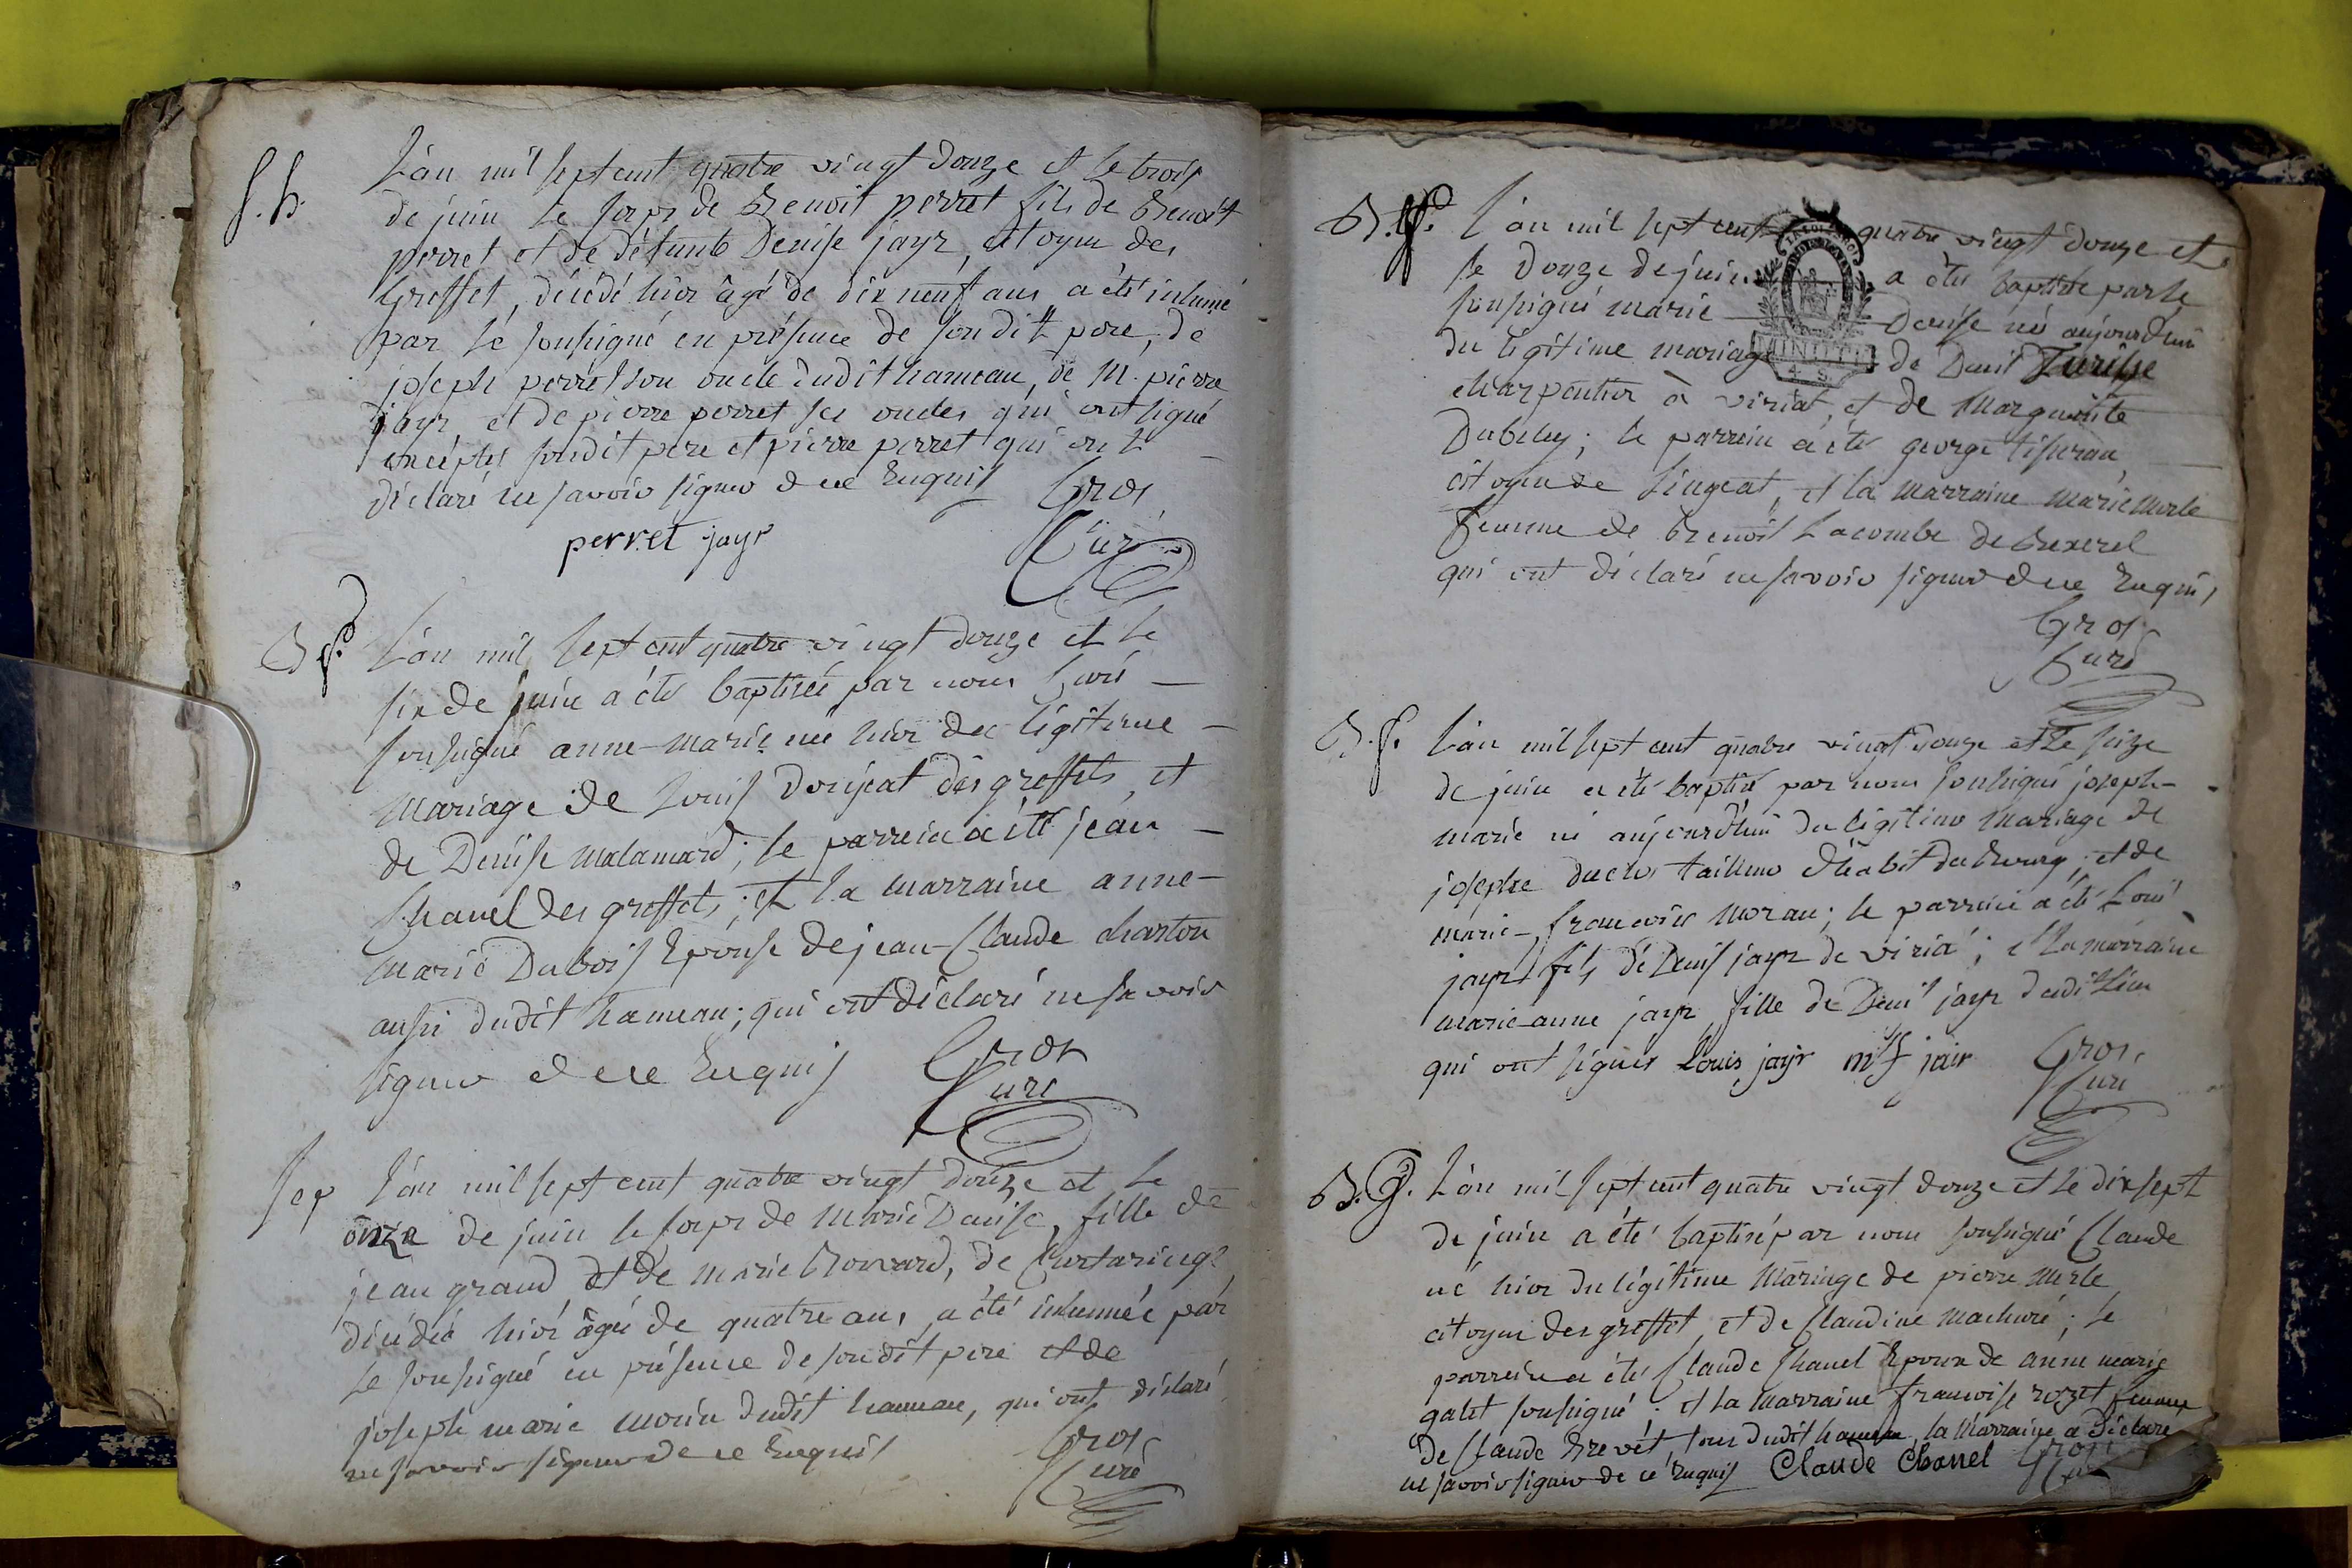 S. h.
L'an mil sept cent quatre vingt douze et le trois
de juin le corps de Benoit perret fils de Benoit
perret et de défunte Denise jayr, citoyen des
Greffet, décédé hier âgé de dix neuf ans a été inhumé
par le soussigné en présence de sondit pere, de
joseph perret son oncle dudit hameau, de M. pierre
jayr et de pierre perret ses oncles qui ont signé
exceptés sondit pere et pierre perret qui ont
déclaré ne savoir signer de ce Enquis Gros
perret jayr Curé
B. f.
L'an mil sept cent quatre vingt douze et le
six de juin a été baptisée par nous Curé
soussigné anne-marie née hier du légitime
mariage de Louis Donjeat des greffets, et
de Denise malamard; le parrein a été jean
Chanel des greffets; et la marraine anne-
marie Dubois Epouse de jean-Claude charton
aussi dudit hameau; qui ont déclaré ne savoir
signer de ce Enquis Gros
Curé
Sep
L'an mil sept cent quatre vingt douze et le
onze de juin le corps de Marie Denise, fille de
jean grand et de marie Bonnard, de
décédée hier âgée de quatre ans, a été inhumée par
le soussigné en présence de sondit pere et de
joseph marie morin dudit hameau, qui ont déclaré
ne savoir signer de ce Enquis Gros
Curé
B. f.
L'an mil sept cent quatre vingt douze et
le douze de juin a été baptisée par le
soussigné marie Denise née aujourd'hui
du légitime mariage de Denis
MINUTE
4 S.
charpentier à viriat, et de Marguerite
Dubeley; le parrein a été george tiseran,
citoyen de Lingeat, et la marraine marie merle
femme de Benoit Lacombe de Bexerel
qui ont déclaré ne savoir signer de ce Enquis
Gros
Curé
B. f.
L'an mil sept cent quatre vingt douze et le seize
de juin a été baptisé par nous soussigné joseph-
marie né aujourd'hui du légitime mariage de
josephe duclos tailleur d'habit du bourg; et de
marie-francoise moran; le parrein a été Louis
jayr fils de Denis jayr de viria; et la marraine
marie-anne jayr fille de Denis jayr dudit lieu
qui ont signés Louis jayr jair Gros
Curé
B. G.
L'an mil sept cent quatre vingt douze et le dix sept
de juin a été baptisé par nous soussigné Claude
né hier du légitime mariage de pierre merle,
citoyen des greffet, et de Claudine machuré; le
parrein a été Claude Chanel Epoux de anne marie
galet soussigné; et la marraine francoise rozet femme
de Claude Brevêt, tous dudit hameau, la marraine a déclaré
ne savoir signer de ce Enquis Claude Chanel Gros